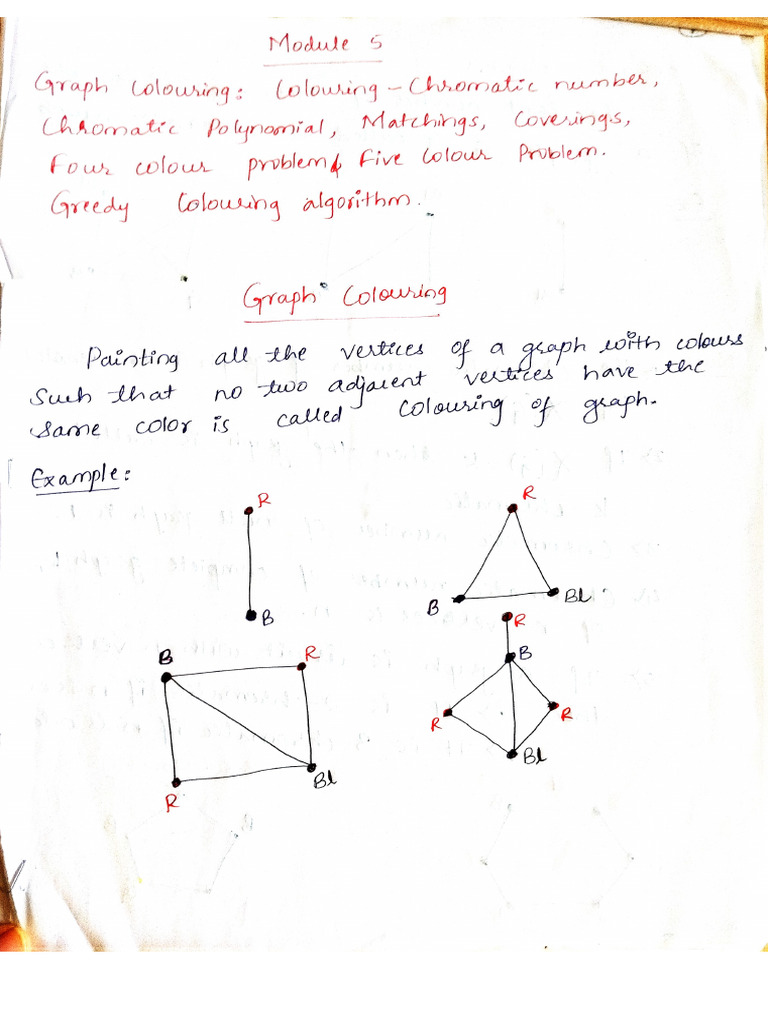 Module 5
Graph Colouring: Colouring - Chromatic number,
Chromatic Polynomial, Matchings, Coverings,
Four colour problem & Five Colour Problem.
Greedy Colouring algorithm.
Graph Colouring
Painting all the vertices of a graph with colours
Such that no two adjacent vertices have the
same color is called Colouring of graph.
Example:
R
B
R
B
Bl
B
R
R
Bl
R
B
R
R
Bl